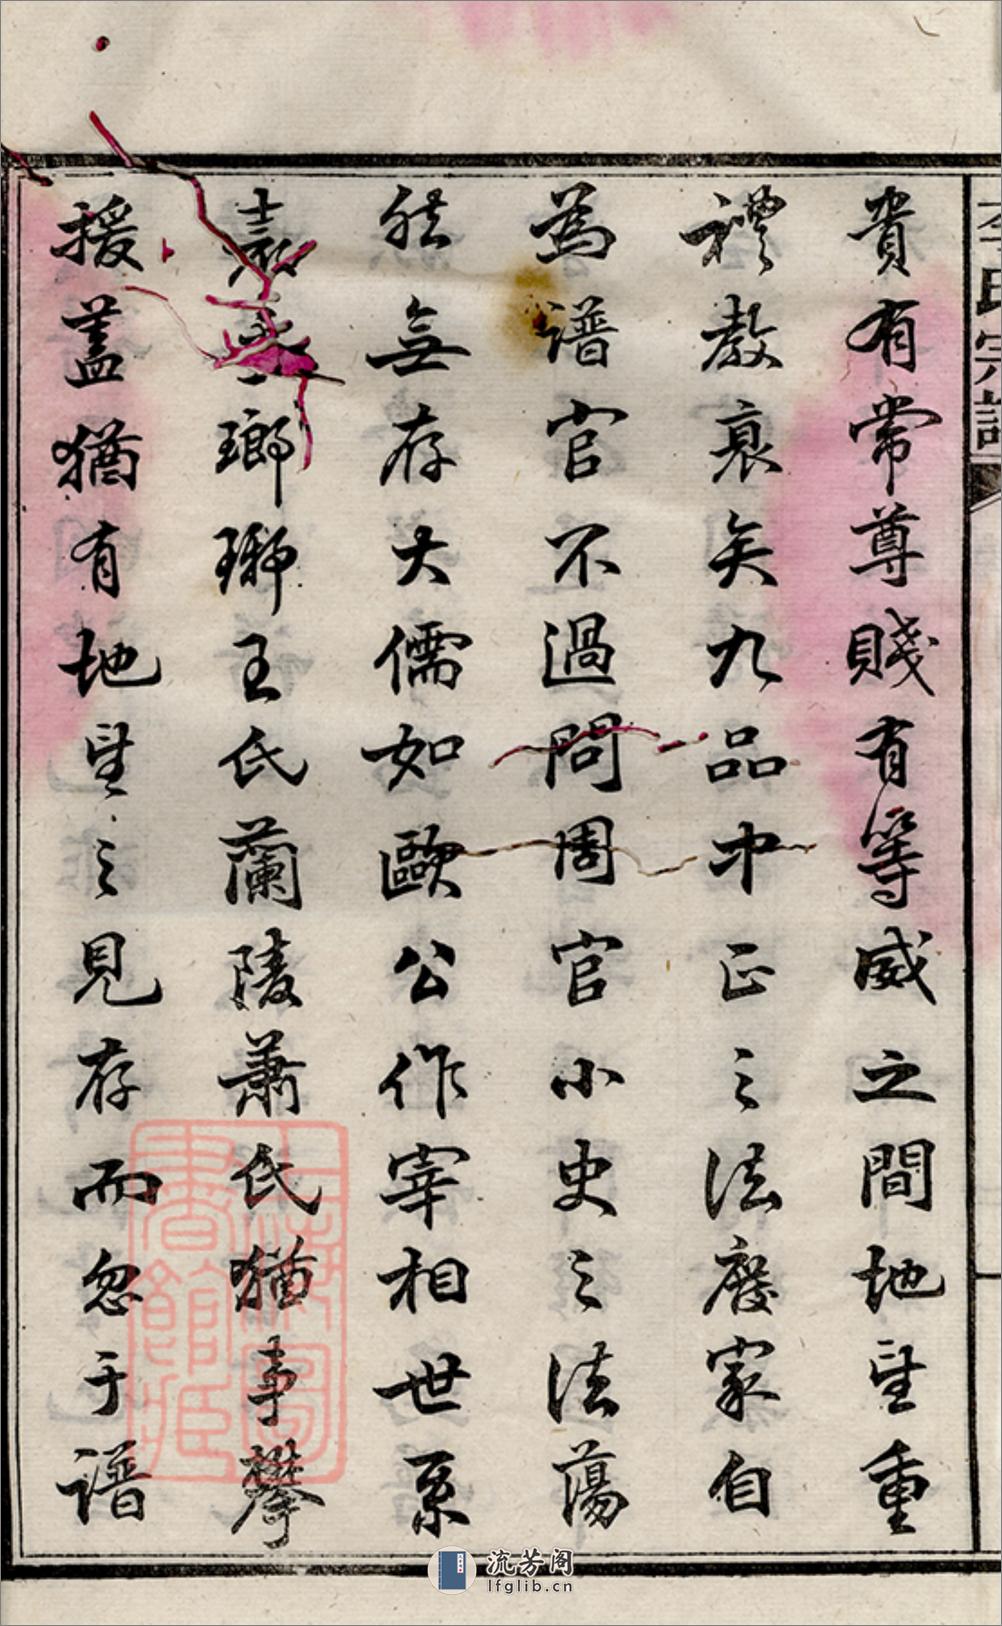 李氏宗譜
貴有常尊賤有等威之間地望重
禮教衰矣九品中正之法廢家自
為譜官不過問周官小史之法蕩
然無存大儒如歐公作宰相世系
表於瑯琊王氏蘭陵蕭氏猶事攀
援蓋猶有地望之見存而忽于譜
上海圖書館藏
流芳阁
lfglib.cn